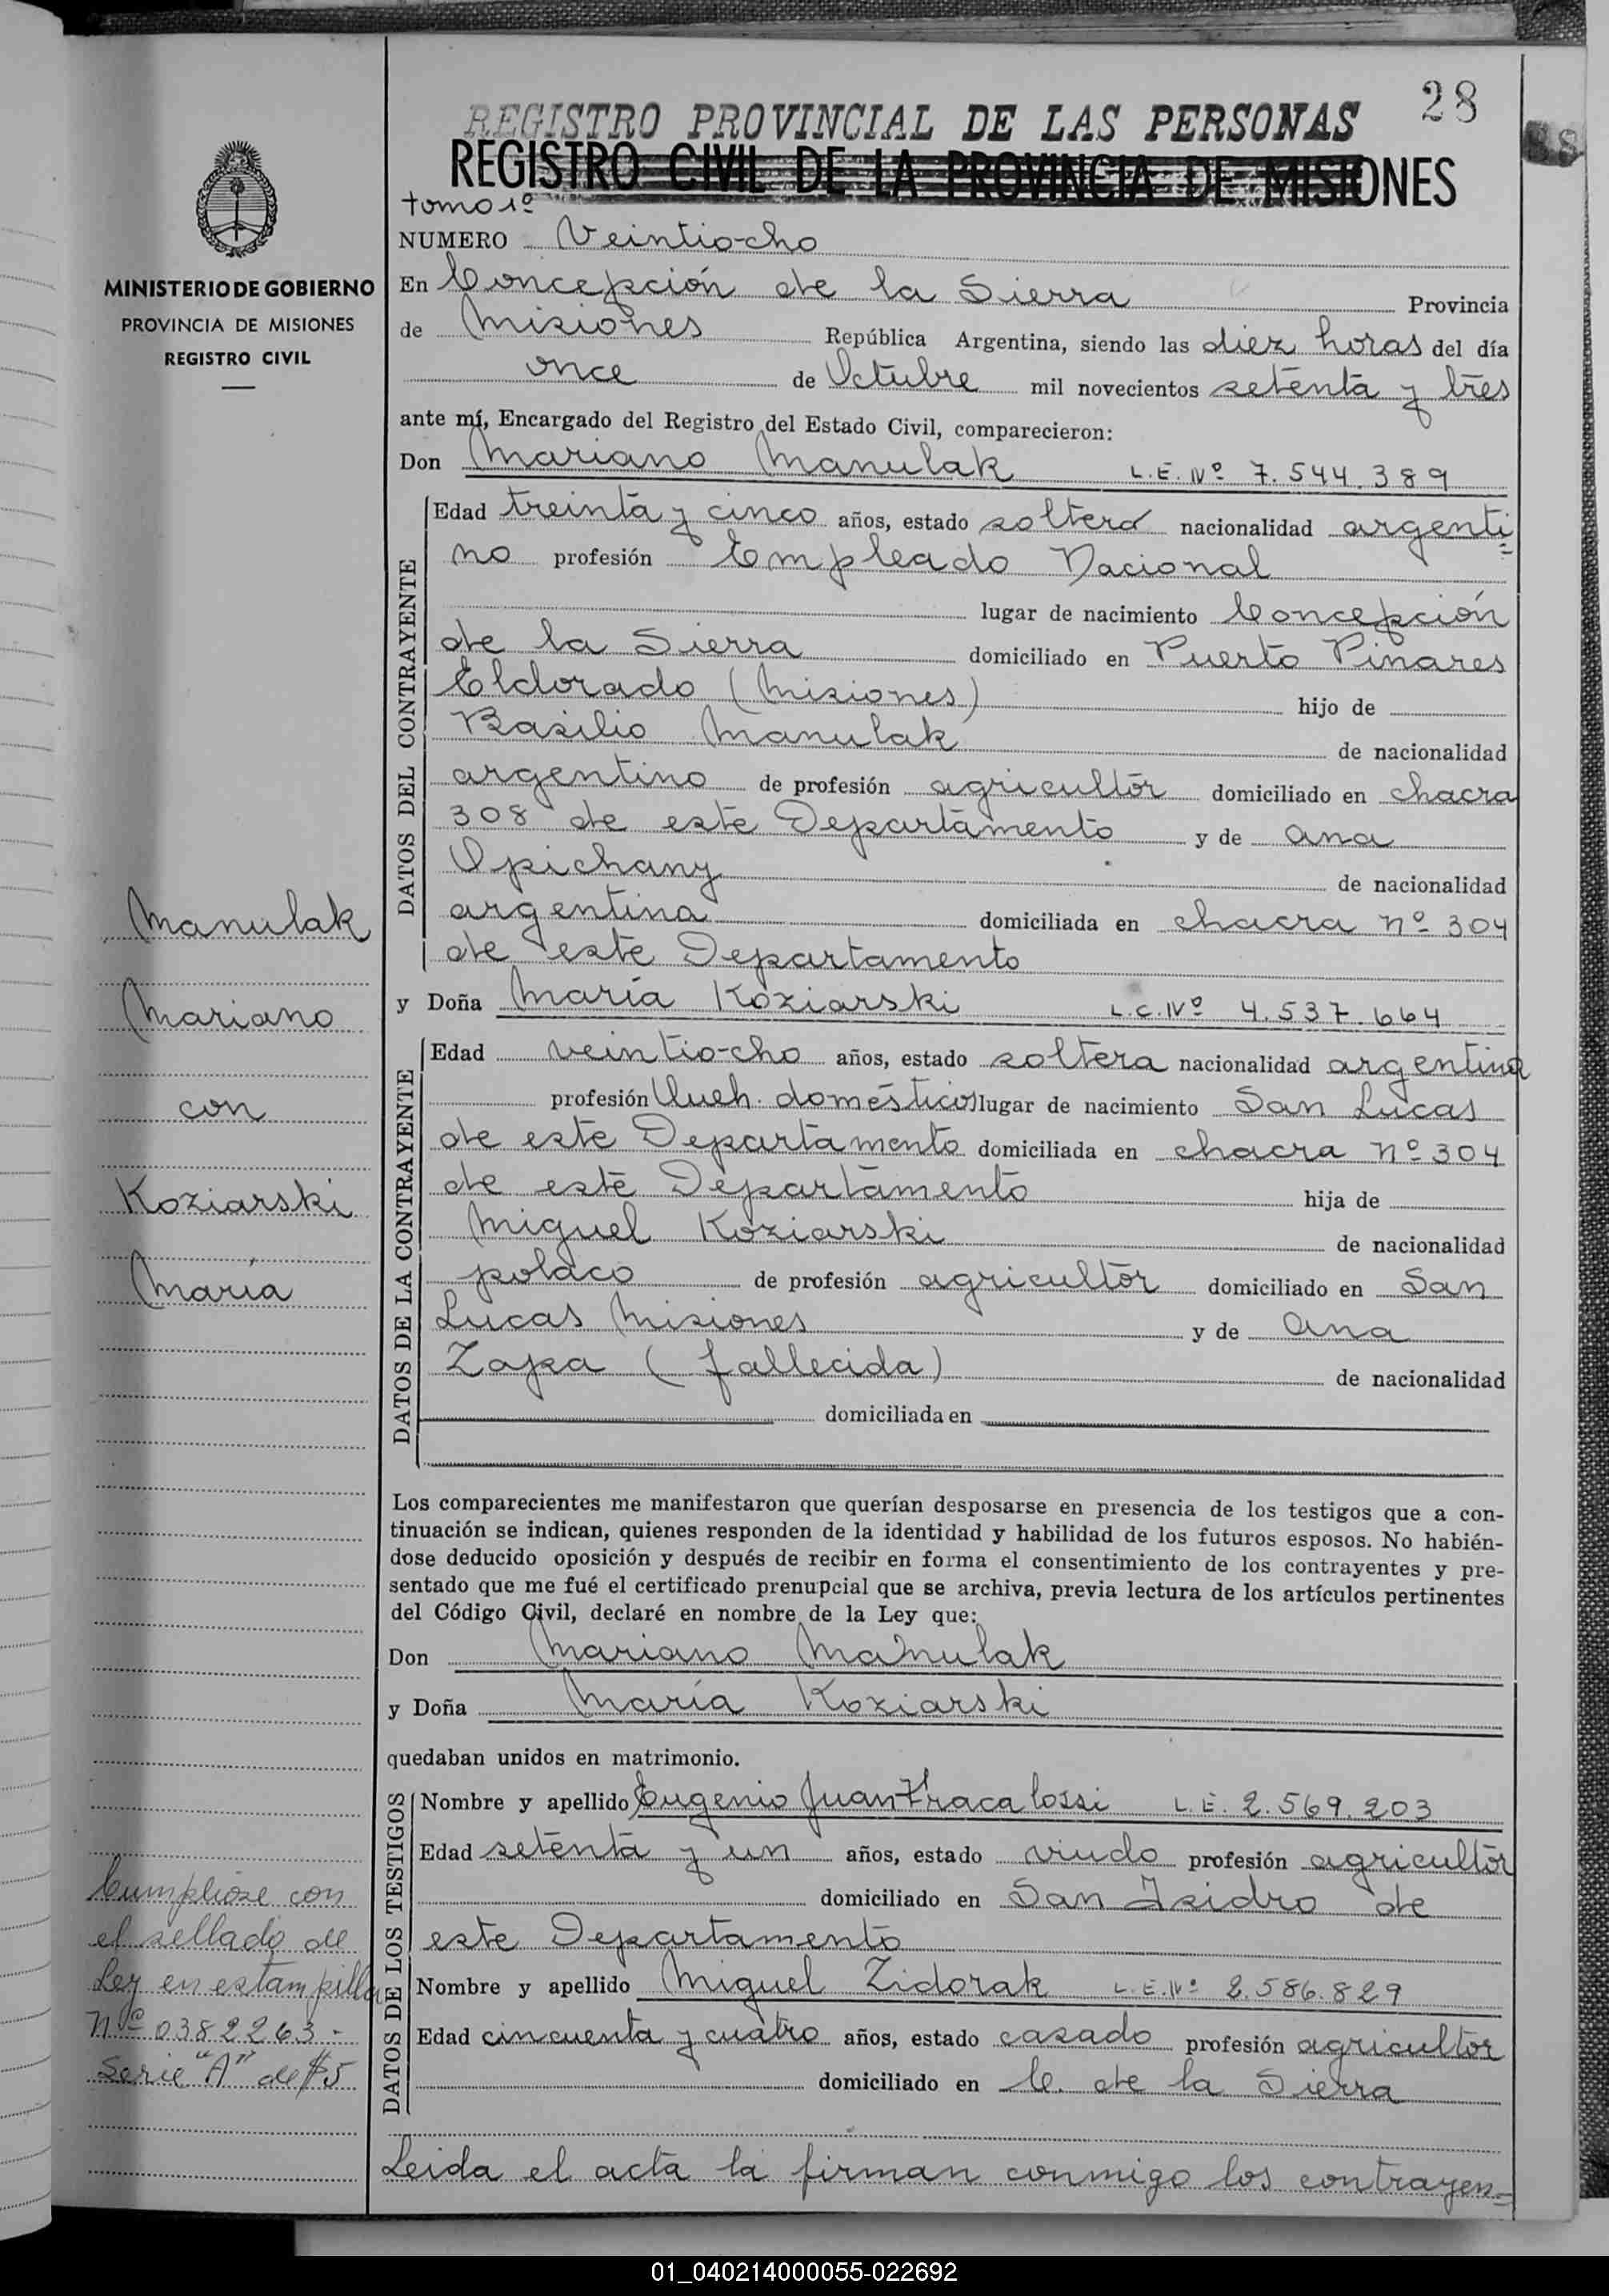 28
REGISTRO PROVINCIAL DE LAS PERSONAS
REGISTRO CIVIL DE LA PROVINCIA DE MISIONES
tomo 1º
NUMERO Veintiocho
MINISTERIO DE GOBIERNO
PROVINCIA DE MISIONES
REGISTRO CIVIL
En Concepción de la Sierra Provincia
de Misiones República Argentina, siendo las diez horas del día
once de Octubre mil novecientos setenta y tres
ante mí, Encargado del Registro del Estado Civil, comparecieron:
Don Mariano Manulak L.E. Nº 7.544.389
DATOS DEL CONTRAYENTE
Edad treinta y cinco años, estado soltero nacionalidad argenti=
no profesión Empleado Nacional
lugar de nacimiento Concepción
de la Sierra domiciliado en Puerto Pinares
Eldorado (Misiones) hijo de
Basilio Manulak de nacionalidad
argentino de profesión agricultor domiciliado en chacra
308 de este Departamento y de Ana
Opichany de nacionalidad
argentina domiciliada en chacra nº 304
de este Departamento
y Doña María Koziarski L.C. Nº 4.537.664
DATOS DE LA CONTRAYENTE
Edad veintiocho años, estado soltera nacionalidad argentina
profesión Queh. domésticos lugar de nacimiento San Lucas
de este Departamento domiciliada en chacra nº 304
de este Departamento hija de
Miguel Koziarski de nacionalidad
polaco de profesión agricultor domiciliado en San
Lucas Misiones y de Ana
Zapa (fallecida) de nacionalidad
domiciliada en
Manulak
Mariano
con
Koziarski
María
Los comparecientes me manifestaron que querían desposarse en presencia de los testigos que a con-
tinuación se indican, quienes responden de la identidad y habilidad de los futuros esposos. No habién-
dose deducido oposición y después de recibir en forma el consentimiento de los contrayentes y pre-
sentado que me fué el certificado prenupcial que se archiva, previa lectura de los artículos pertinentes
del Código Civil, declaré en nombre de la Ley que:
Don Mariano Manulak
y Doña María Koziarski
quedaban unidos en matrimonio.
DATOS DE LOS TESTIGOS
Nombre y apellido Eugenio Juan Fracalossi L.E. 2.569.203
Edad setenta y un años, estado viudo profesión agricultor
domiciliado en San Isidro de
este Departamento
Nombre y apellido Miguel Zidorak L.E. Nº 2.586.829
Edad cincuenta y cuatro años, estado casado profesión agricultor
domiciliado en C. de la Sierra
Leida el acta la firman conmigo los contrayen=
Cumpliose con
el sellado de
Ley en estampilla
Nº 0382263-
Serie "A" de $5
01_040214000055-022692